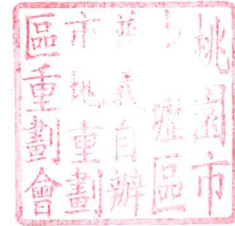 桃園市
中壢區
義自辦
市地重劃
區重劃會